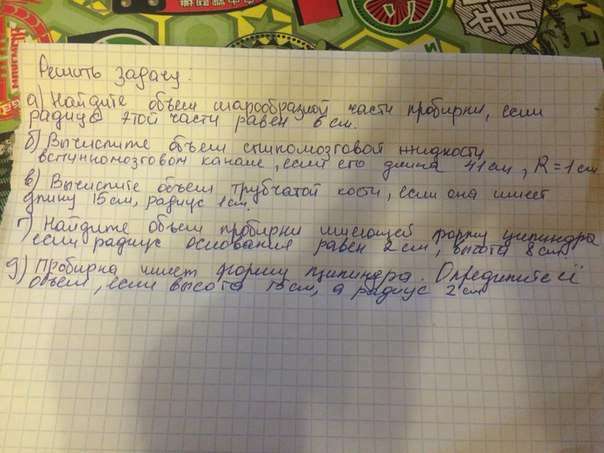 Решить задачу:
а) Найдите объем шарообразной части пробирки, если
радиус этой части равен 6 см.
б) Вычислите объем спиномозговой жидкости
в спинномозговом канале, если его длина 41 см, R = 1 см
в) Вычислите объем трубчатой кости, если она имеет
длину 15 см, радиус 1 см.
г) Найдите объем пробирки имеющей форму цилиндра
если радиус основания равен 2 см, высота 8 см
д) Пробирка имеет форму цилиндра. Определите её
объем, если высота см, а радиус 2 см